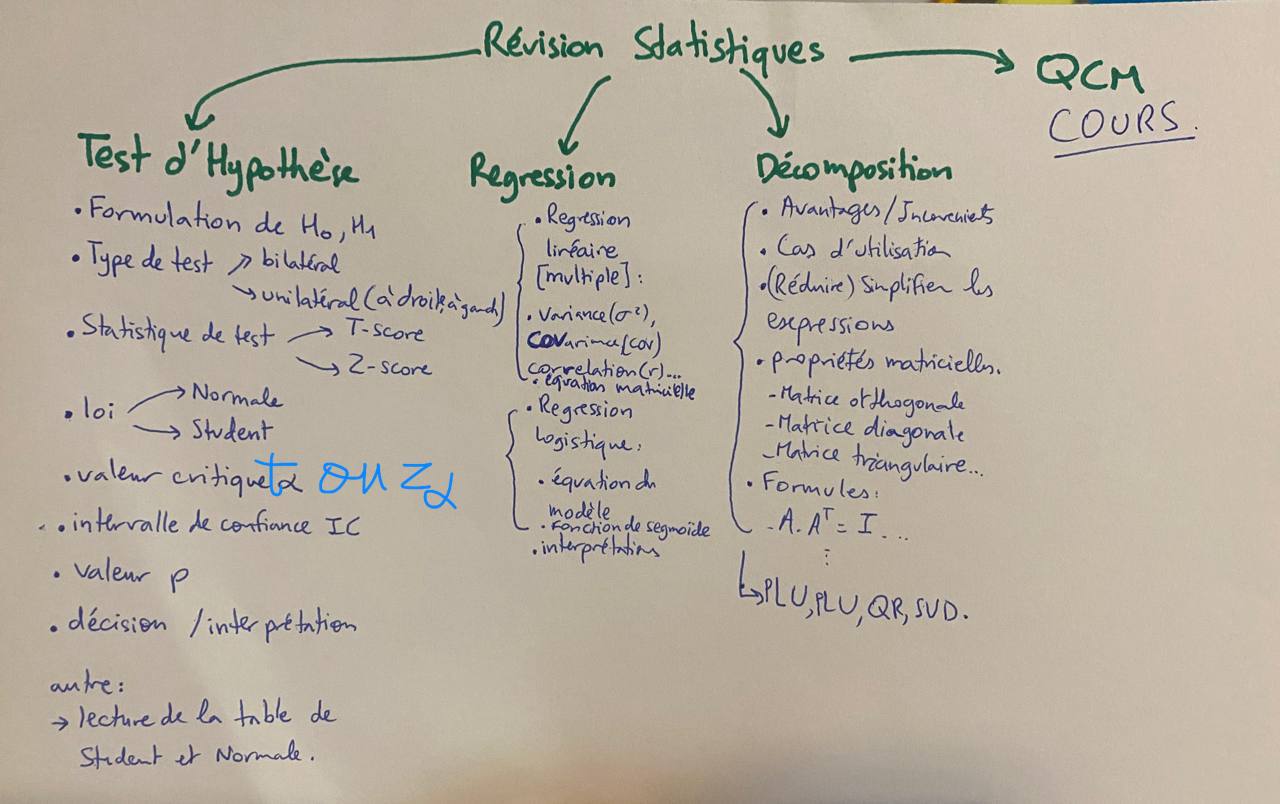 Révision Statistiques
QCM
COURS.
Test d'Hypothèse
• Formulation de H₀, H₁
• Type de test ↗ bilatéral
↘ unilatéral (à droite, à gauch)
• Statistique de test → T-score
→ Z-score
• loi → Normale
→ Student
• valeur critique tα ou Zα
• intervalle de confiance IC
• valeur p
• décision / interprétation
autre:
→ lecture de la table de
Student et Normale.
Regression
• Regression
linéaire
[multiple] :
• variance (σ²),
COVariance (cov)
correlation (r)...
• équation matricielle
• Regression
Logistique:
• équation du
modèle
• fonction de segmoïde
• interprétations
Décomposition
• Avantages/Inconvenients
• Cas d'utilisation
• (Réduire) Simplifier les
expressions
• propriétés matricielles.
- Matrice orthogonale
- Matrice diagonale
- Matrice triangulaire...
• Formules:
- A. Aᵀ = I ...
⋮
↳ PLU, PLU, QR, SUD.